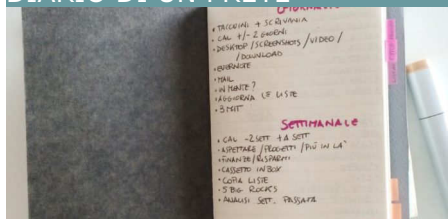 DIARIO DI UN PRETE
GIORNALIERO
• TACCUINI + SCRIVANIA
• CAL +/- 2 GIORNI
• DESKTOP / SCREENSHOTS / VIDEO /
/ DOWNLOAD
• EVERNOTE
• MAIL
• IN MENTE?
• AGGIORNA LE LISTE
• 3 MIT
SETTIMANALE
• CAL -2 SETT +4 SETT
• ASPETTARE / PROGETTI / PIÙ IN LÀ
• FINANZE / RISPARMI
• CASSETTO INBOX
• COPIA LISTE
• 5 BIG ROCKS
• ANALISI SETT. PASSATA